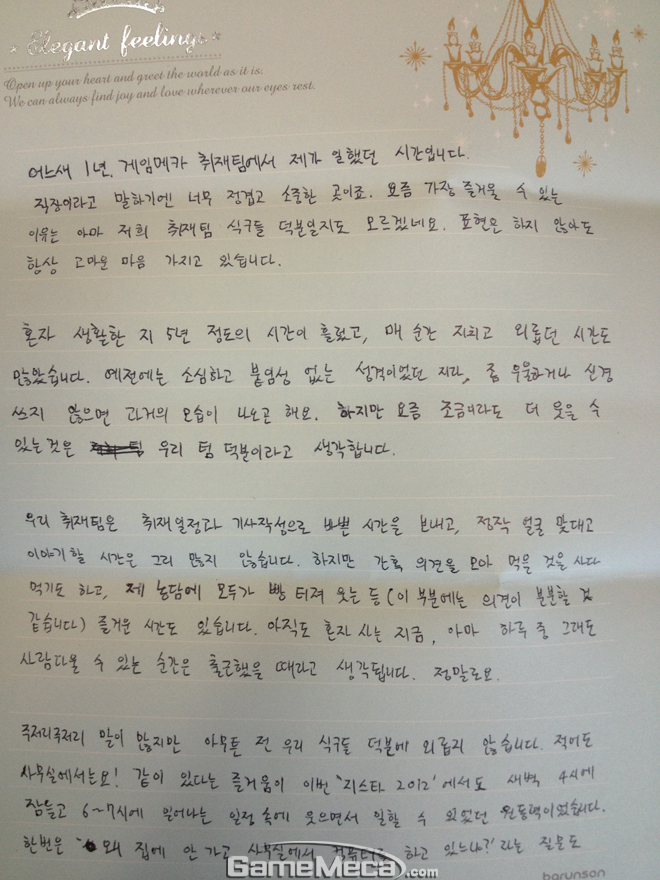 Elegant feelings
Open up your heart and greet the world as it is.
We can always find joy and love wherever our eyes rest.
어느새 1년. 게임메카 취재팀에서 제가 일했던 시간입니다.
직장이라고 말하기엔 너무 정겹고 소중한 곳이죠. 요즘 가장 즐거울 수 있는
이유는 아마 저희 취재팀 식구들 덕분일지도 모르겠네요. 표현은 하지 않아도
항상 고마운 마음 가지고 있습니다.
혼자 생활한 지 5년 정도의 시간이 흘렀고, 매 순간 지치고 외롭던 시간도
많았습니다. 예전에는 소심하고 붙임성 없는 성격이었던 지라, 좀 우울하거나 신경
쓰지 않으면 과거의 모습이 나오곤 해요. 하지만 요즘 조금이라도 더 웃을 수
있는 것은 우리 팀 덕분이라고 생각합니다.
우리 취재팀은 취재일정과 기사작성으로 바쁜 시간을 보내고, 정작 얼굴 맞대고
이야기 할 시간은 그리 많지 않습니다. 하지만 간혹 의견을 모아 먹을 것을 사다
먹기도 하고, 제 농담에 모두가 빵 터져 웃는 등 (이 부분에는 의견이 분분할 것
같습니다) 즐거운 시간도 있습니다. 아직도 혼자 사는 지금, 아마 하루 중 그래도
사람다울 수 있는 순간은 출근했을 때라고 생각됩니다. 정말로요.
주저리주저리 말이 많지만 아무튼 전 우리 식구들 덕분에 외롭지 않습니다. 적어도
사무실에서는요! 같이 있다는 즐거움이 이번 '지스타 2012'에서도 새벽 4시에
잠들고 6~7시에 일어나는 일정 속에 웃으면서 일할 수 있었던 원동력이었습니다.
한번은 '왜 집에 안 가고 사무실에서 컴퓨터로 하고 있느냐?'라는 질문도
GameMeca.com
barunson